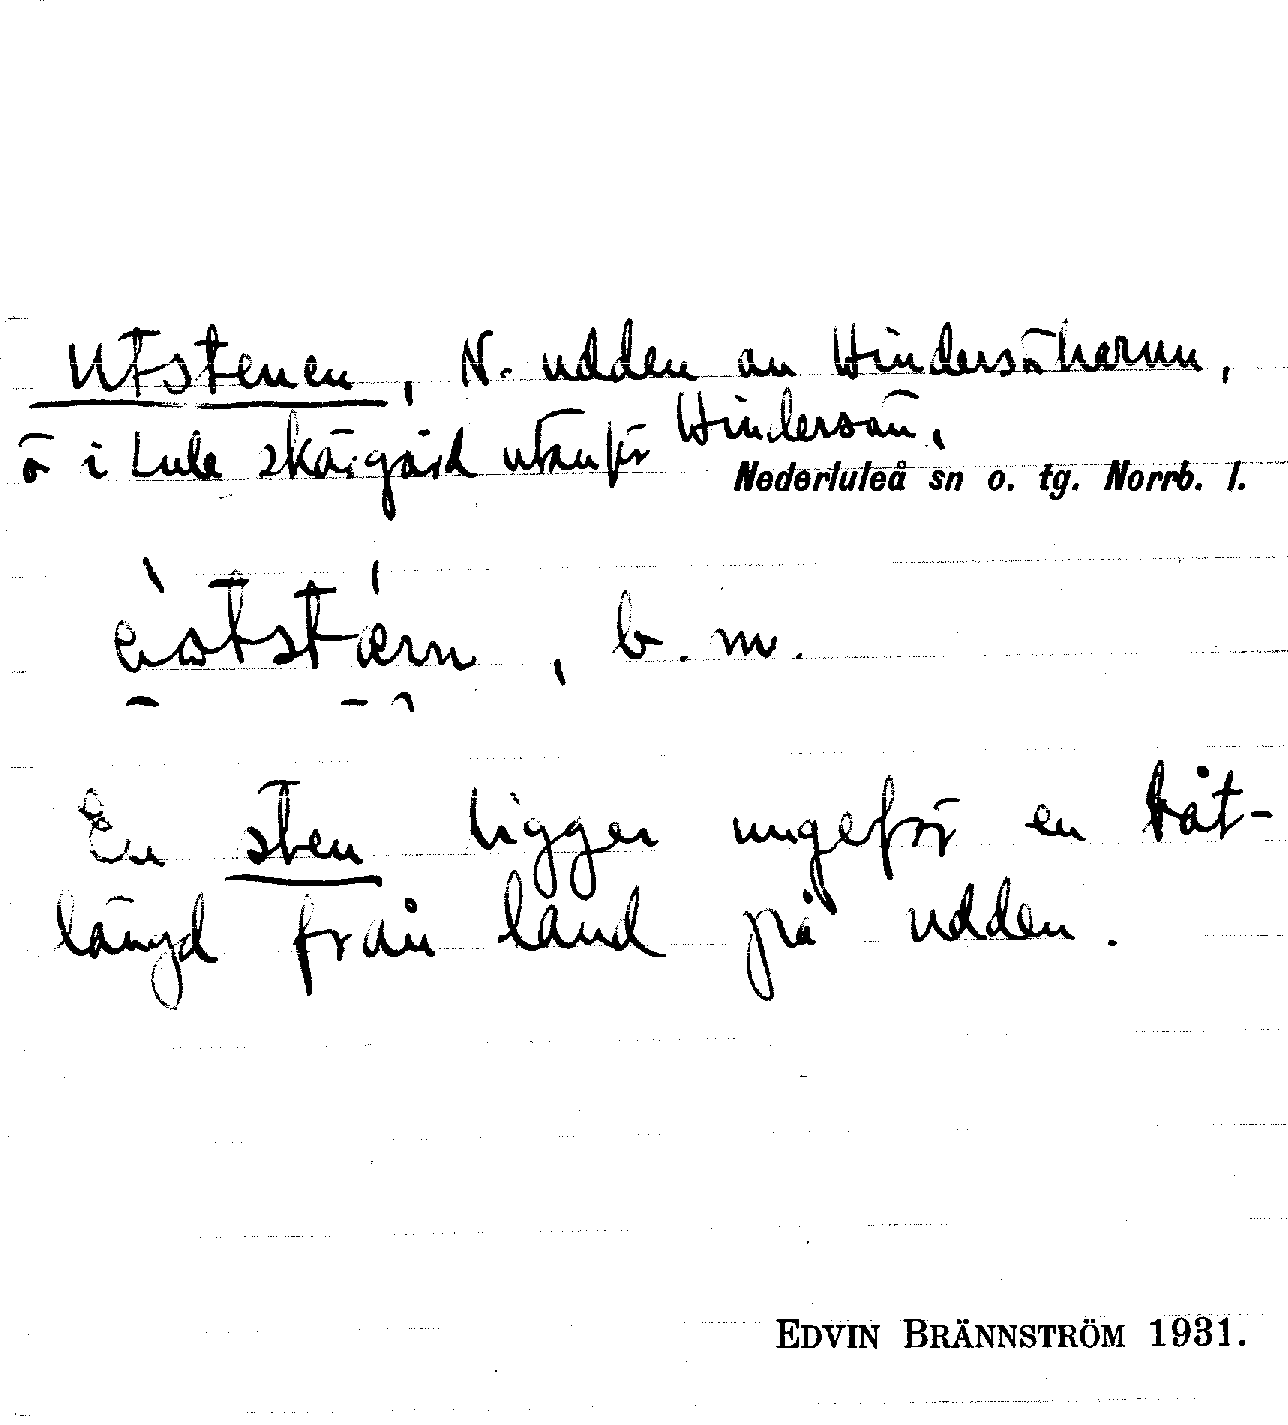 Utstenen, N. udden av Hindersöharun,
ö i Lule skärgård utanför Hindersön,
Nederluleå sn o. tg. Norrb. l.
b. m.
En sten ligger ungefär en båt-
längd från land på udden.
EDVIN BRÄNNSTRÖM 1931.